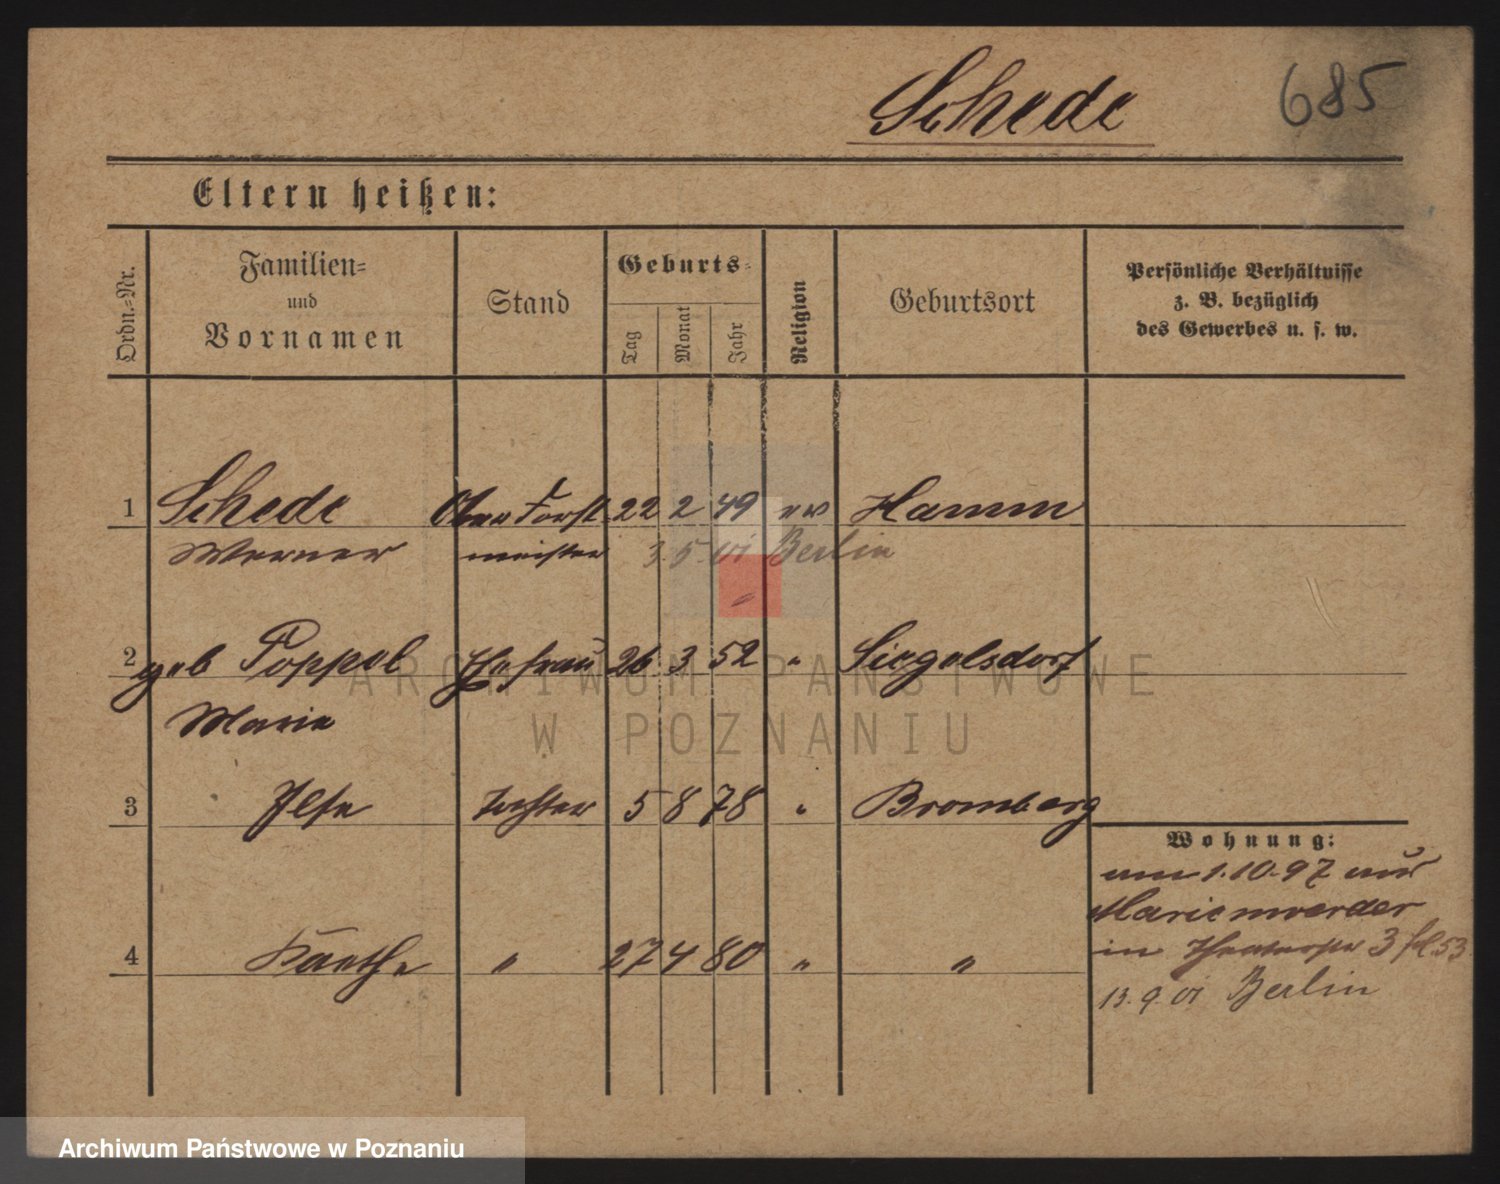 Schede
685
Eltern heißen:
Ordn.=Nr.
Familien=
und
Vornamen
Stand
Geburts=
Tag
Monat
Jahr
Religion
Geburtsort
Persönliche Verhältnisse
z. B. bezüglich
des Gewerbes u. s. w.
1 Schede Ober Forst 22 2 49 ev Hamm
Werner meister 3. 5. 01 Berlin
2 geb Poppel Ehefrau 26 3 52 " Siegelsdorf
Marie
3 Ilse Tochter 5 8 78 " Bromberg
Wohnung:
am 1.10.97 aus
Marienwerder
4 Käethe " 27 4 80 " "
in Theaterstr 3 53
13.9.01 Berlin
ARCHIWUM PAŃSTWOWE
W POZNANIU
Archiwum Państwowe w Poznaniu